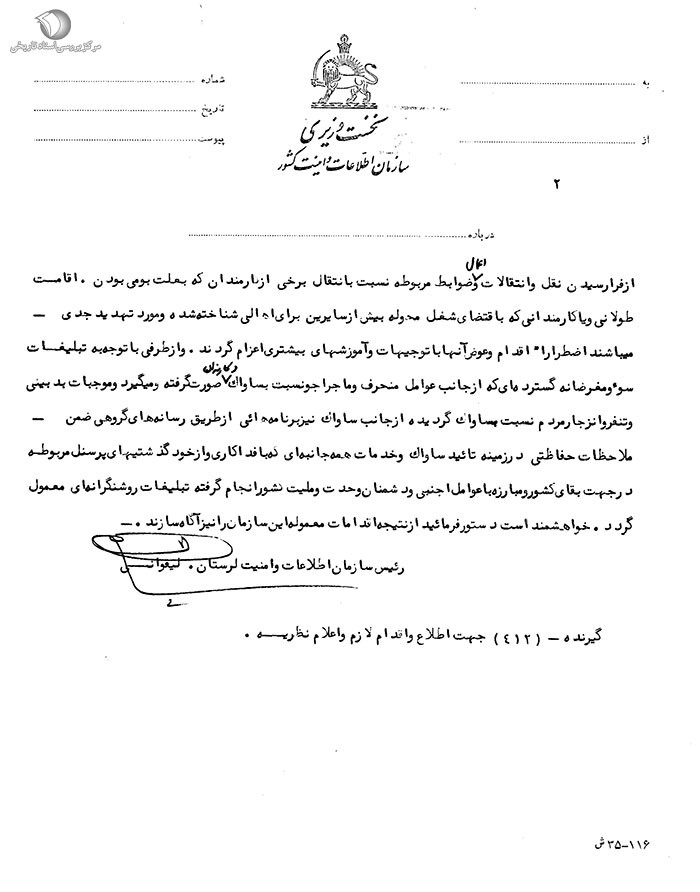 مرکز بررسی اسناد تاریخی
به
شماره
از
تاریخ
پیوست
نخست وزیری
سازمان اطلاعات و امنیت کشور
۲
درباره
اعمال
ازفرارسیدن نقل وانتقالات وضوابط مربوطه نسبت بانتقال برخی ازکارمندان که بعلت بومی بودن . اقامت
طولانی ویاکارمندانی که باقتضای شغل محوله بیش ازسایرین برای اهالی شناخته شده ومورد تهدید جدی –
میباشند اضطرارا" اقدام وعوض آنها با توجیهات وآموزشهای بیشتری اعزام گردند . وازطرفی با توجه به تبلیغات
سوء ومغرضانه گسترده ای که ازجانب عوامل منحرف وماجراجو نسبت بساواک وکارمندان صورت گرفته ومیگیرد وموجبات بدبینی
وتنفروانزجارمردم نسبت بساواک گردیده ازجانب ساواک نیزبرنامه هائی ازطریق رسانه های گروهی ضمن –
ملاحظات حفاظتی درزمینه تائید ساواک وخدمات همه جانبه ای که با فداکاری وازخود گذشتیهای پرسنل مربوطه
درجهت بقای کشورومبارزه با عوامل اجنبی ودشمنان وحدت وملیت کشورانجام گرفته تبلیغات روشنگرانه ای معمول
گردد . خواهشمند است دستورفرمائید ازنتیجه اقدامات معموله این سازمان رانیزآگاه سازند . –
رئیس سازمان اطلاعات وامنیت لرستان .
گیرنده – (۴۱۲) جهت اطلاع واقدام لازم واعلام نظریه .
۳۵-۱۱۶ ش